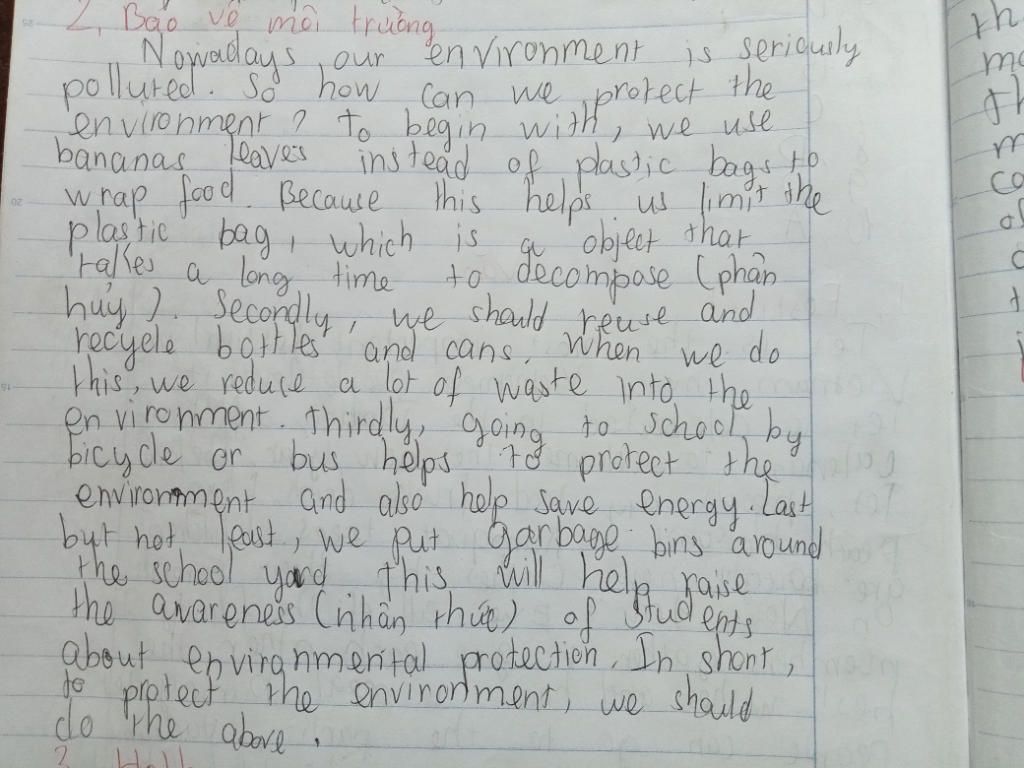 2, Bảo vệ môi trường
Nowadays, our environment is seriously
polluted. So how can we protect the
environment? To begin with, we use
bananas leaves instead of plastic bags to
wrap food. Because this helps us limit the
plastic bag, which is a object that
takes a long time to decompose (phân
hủy). Secondly, we should reuse and
recycle bottles and cans. When we do
this, we reduce a lot of waste into the
environment. Thirdly, going to school by
bicycle or bus helps to protect the
environment and also help save energy. Last
but not least, we put garbage bins around
the school yard this will help raise
the awareness (nhận thức) of students
about environmental protection. In short,
to protect the environment, we should
do the above.